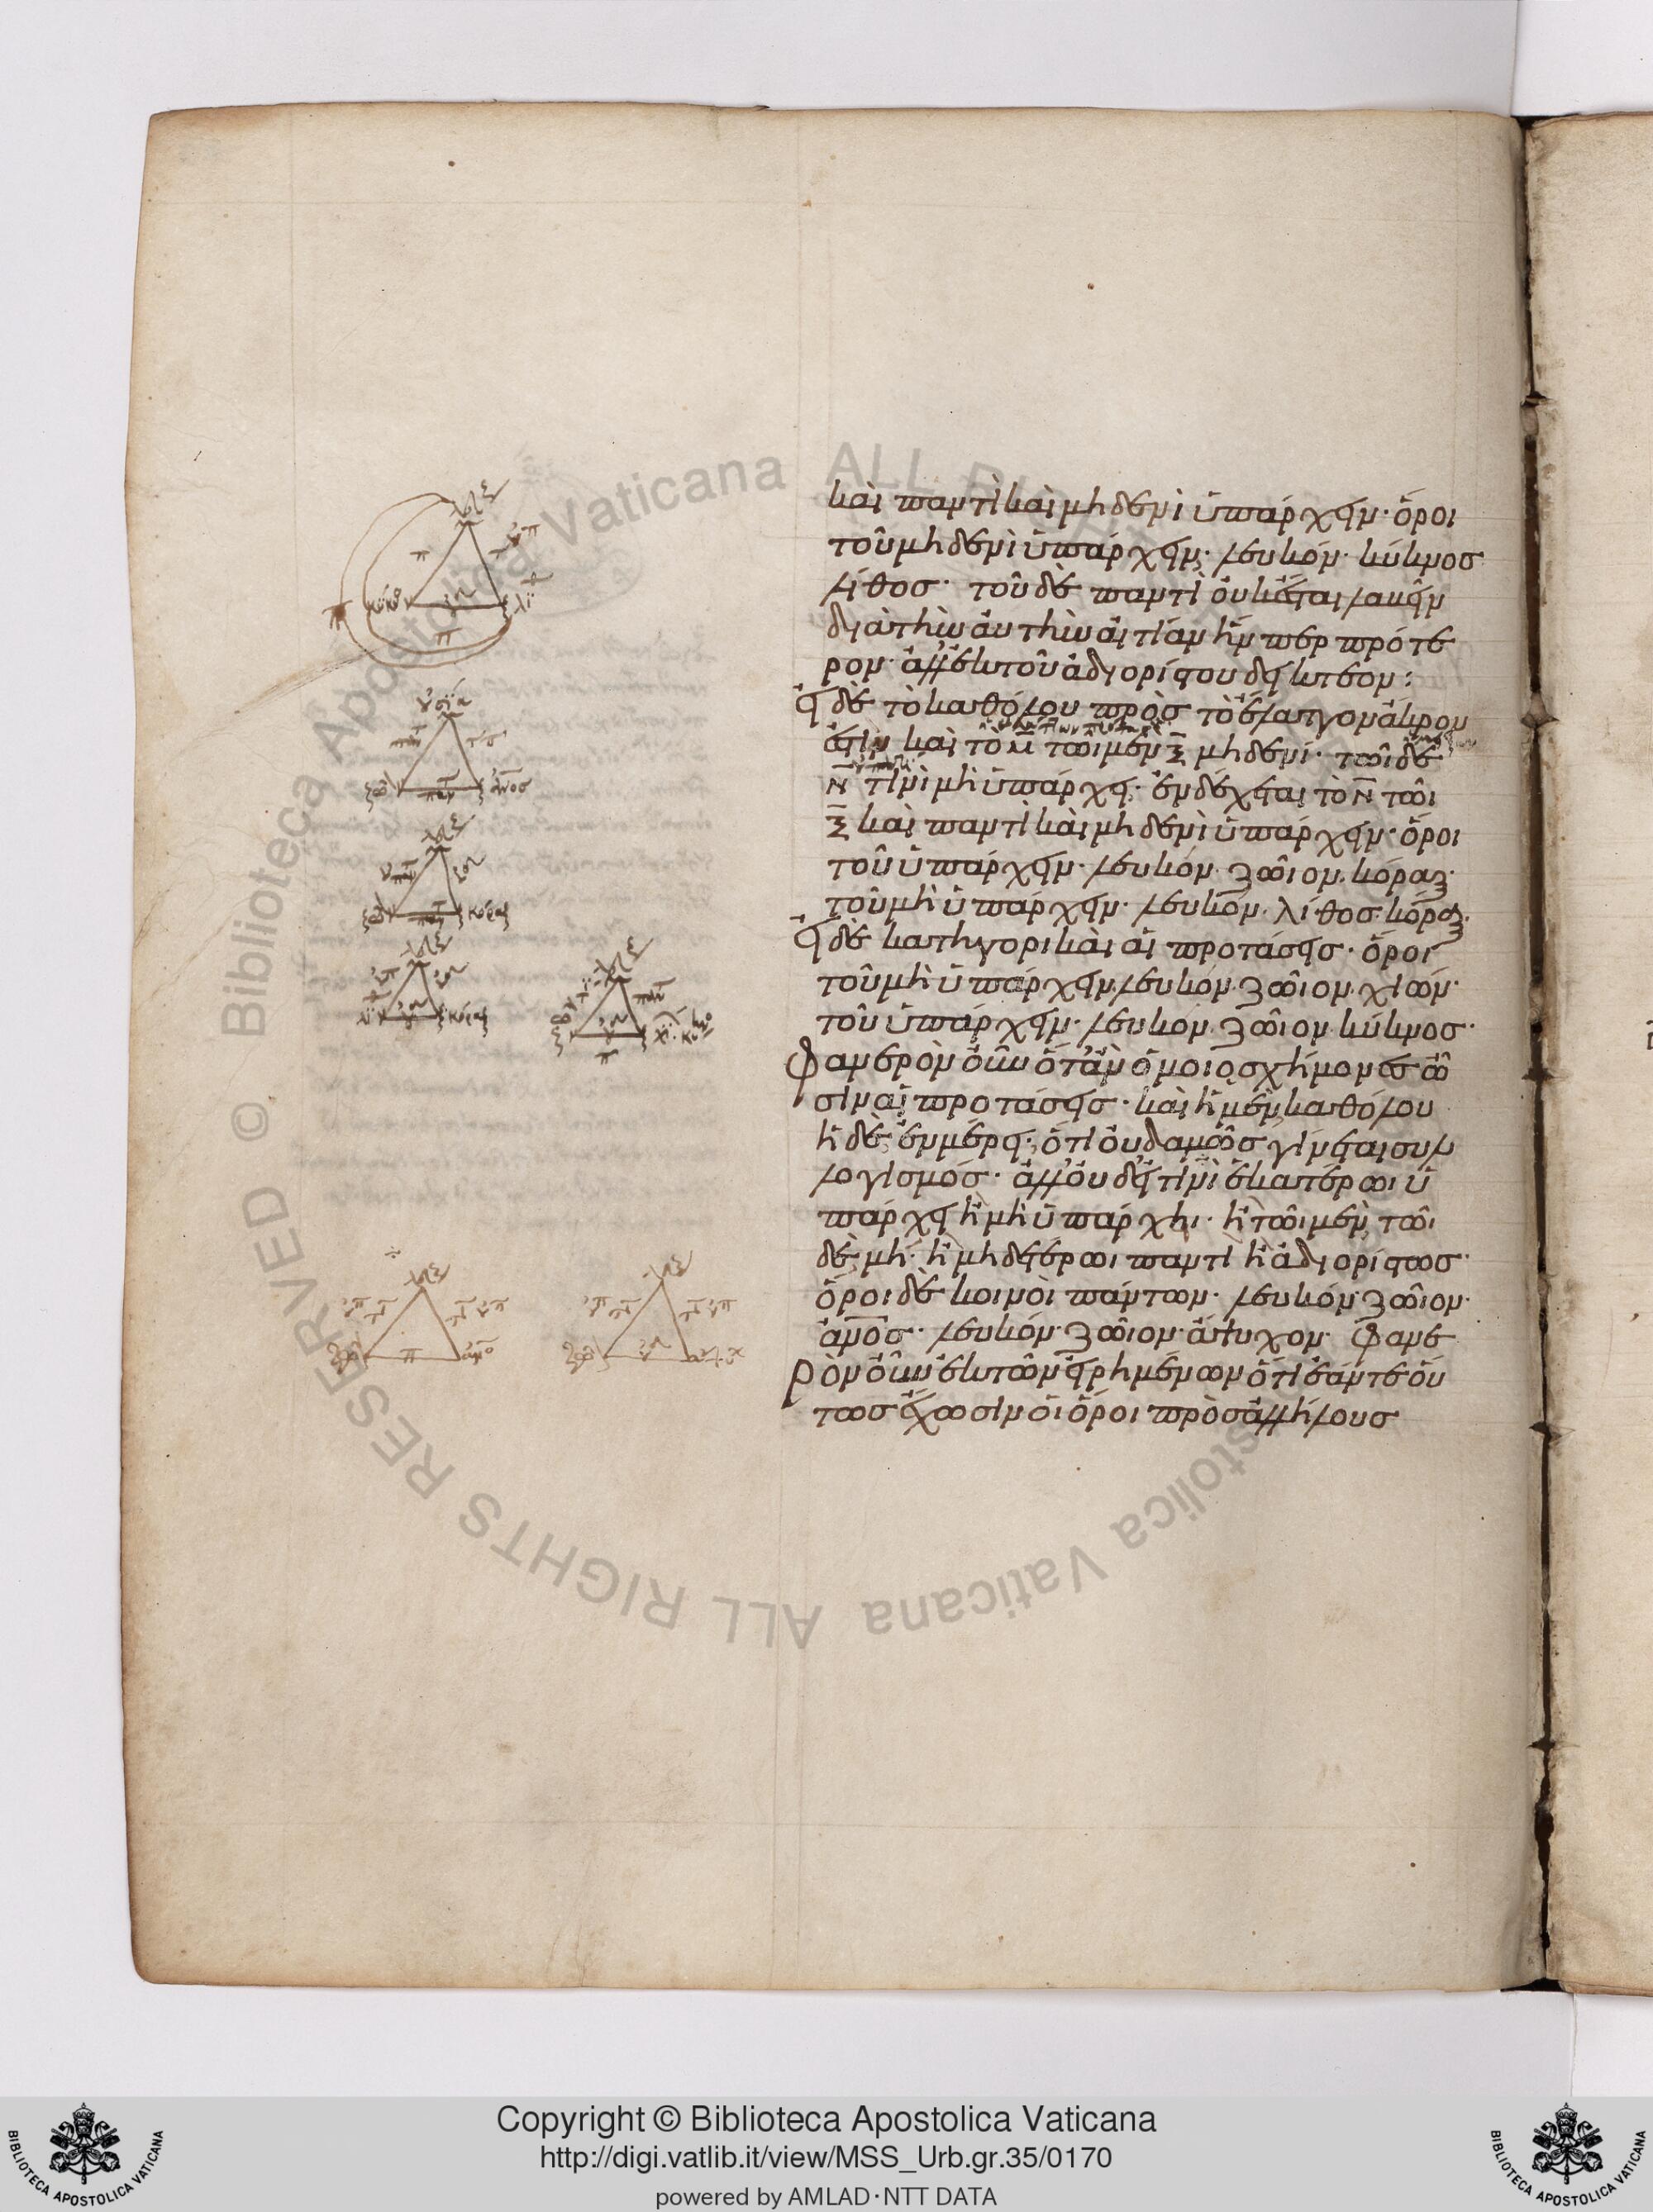 καὶ παντὶ καὶ μηδενὶ ὑπάρχειν· ὅροι
τοῦ μηδενὶ ὑπάρχειν· λευκόν· κύκνος
λίθος· τοῦ δὲ παντὶ οὐκ ἔσται λαβεῖν
διὰ τὴν αὐτὴν αἰτίαν ἥνπερ πρότε
ρον· ἀλλ' ἐκ τοῦ ἀδιορίστου δεικτέον:
εἰ δὲ τὸ καθόλου πρὸς τὸ ἔλαττον ἄκρον
ἐστὶν καὶ τὸ Μ τῶι μὲν Ξ μηδενί· τῶι δὲ
Ν τινὶ μὴ ὑπάρχει· ἐνδέχεται τὸ Ν τῶι
Ξ καὶ παντὶ καὶ μηδενὶ ὑπάρχειν· ὅροι
τοῦ ὑπάρχειν· λευκόν· ζῶιον· κόραξ·
τοῦ μὴ ὑπάρχειν· λευκόν· λίθος· κόραξ·
εἰ δὲ κατηγορικαὶ αἱ προτάσεις· ὅροι
τοῦ μὴ ὑπάρχειν· λευκόν· ζῶιον· χιών·
τοῦ ὑπάρχειν· λευκόν· ζῶιον· κύκνος·
Φανερὸν οὖν ὅταν ὁμοιοσχήμονες ὦ
σιν αἱ προτάσεις· καὶ ἡ μὲν καθόλου
ἡ δὲ ἐν μέρει· ὅτι οὐδαμῶς γίνεται συλ
λογισμός· ἀλλ' οὐδ' εἰ τινὶ ἑκατέρωι ὑ
πάρχει ἢ μὴ ὑπάρχηι· ἢ τῶι μὲν τῶι
δὲ μή· ἢ μηδετέρωι παντὶ ἢ ἀδιορίστως·
ὅροι δὲ κοινοὶ πάντων· λευκόν· ζῶιον·
ἄνος· λευκόν· ζῶιον· ἄψυχον· Φανε
ρὸν οὖν ἐκ τῶν εἰρημένων ὅτι ἐάν τε οὕ
τως ἔχωσιν οἱ ὅροι πρὸς ἀλλήλους
Copyright © Biblioteca Apostolica Vaticana
http://digi.vatlib.it/view/MSS_Urb.gr.35/0170
powered by AMLAD·NTT DATA
BIBLIOTECA APOSTOLICA VATICANA
BIBLIOTECA APOSTOLICA VATICANA
Biblioteca Apostolica Vaticana ALL RIGHTS RESERVED ©